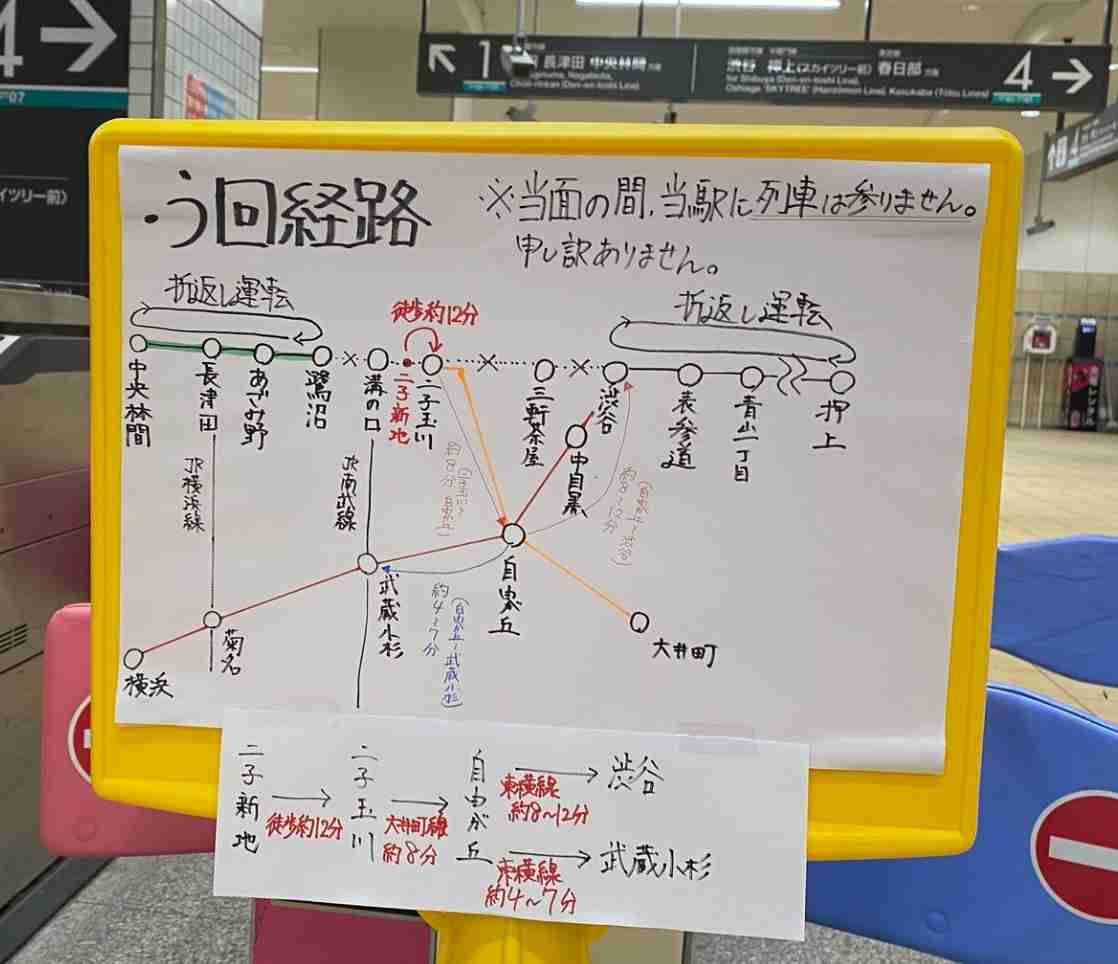 4
1
長津田 中央林間
Chuo-rinkan (Den-en-toshi Line)
渋谷 押上〈スカイツリー前〉 春日部
for Shibuya (Den-en-toshi Line)
Oshiage 'SKYTREE' (Hanzomon Line), Kasukabe (Tobu Lines)
4
イツリー前〉
う回経路
※当面の間、当駅に列車は参りません。
申し訳ありません。
折返し運転
徒歩約12分
折返し運転
中央林間
長津田
あざみ野
鷺沼
溝の口
二子新地
二子玉川
三軒茶屋
渋谷
表参道
青山一丁目
押上
中目黒
JR横浜線
JR南武線
約8分
約8~12分
(自由が丘~渋谷)
自由が丘
武蔵小杉
約4~7分
(自由が丘~武蔵小杉)
菊名
横浜
大井町
二子新地
徒歩約12分
二子玉川
大井町線
約8分
自由が丘
東横線
約8~12分
渋谷
東横線
約4~7分
武蔵小杉